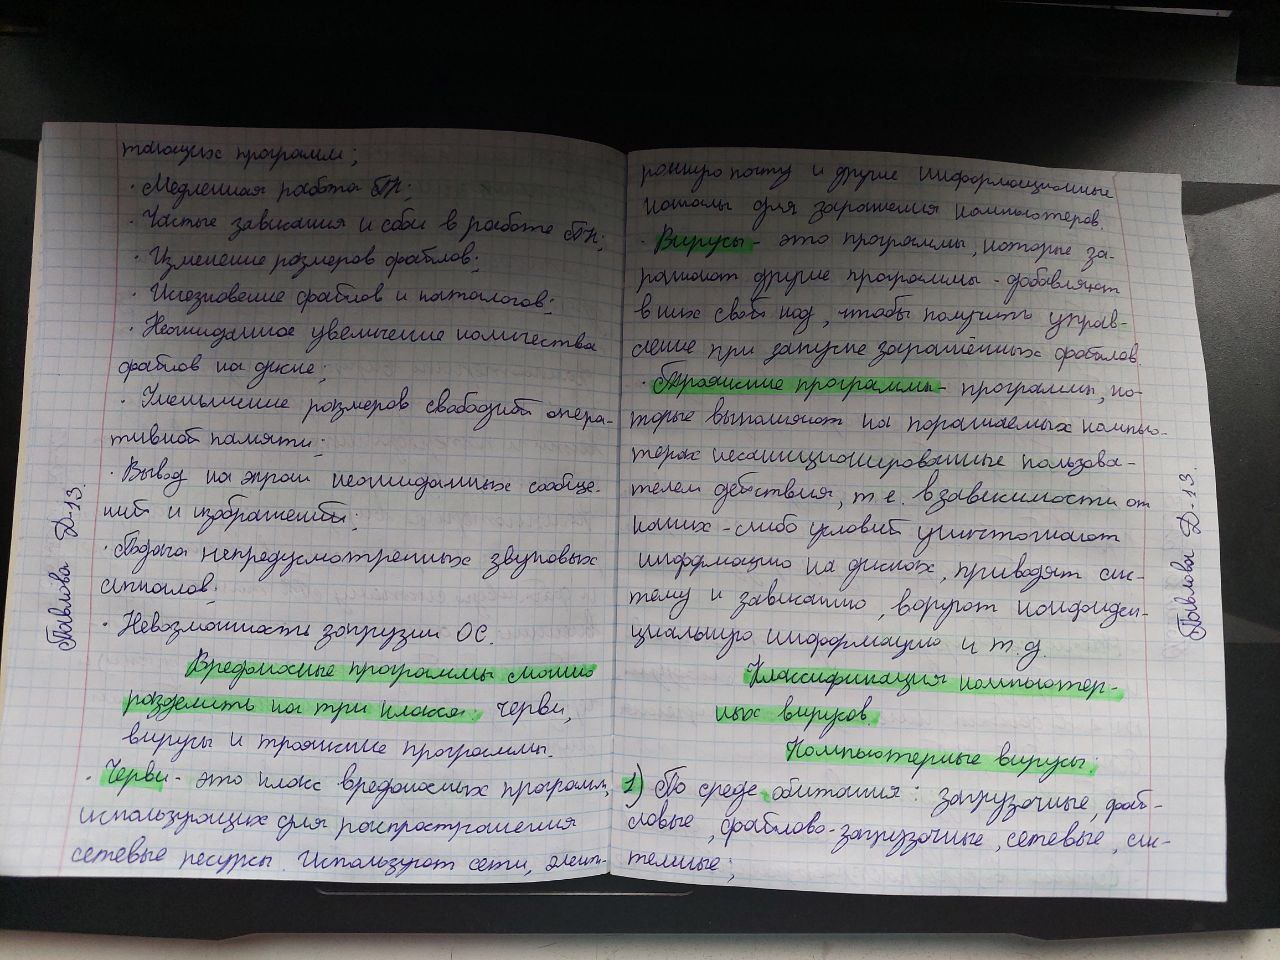 тающих программ;
· Медленная работа ПК;
· Частые зависания и сбои в работе ПК;
· Изменение размеров файлов;
· Исчезновение файлов и каталогов;
· Неожиданное увеличение количества
файлов на диске;
· Уменьшение размеров свободной опера-
тивной памяти;
· Вывод на экран неожиданных сообще-
ний и изображений;
· Подача непредусмотренных звуковых
сигналов;
· Невозможность загрузки ОС.
Вредоносные программы можно
разделить на три класса: черви,
вирусы и троянские программы.
· Черви - это класс вредоносных программ,
использующих для распространения
сетевые ресурсы. Используют сети, элект-
Павлова Д-13.
ронную почту и другие информационные
каналы для заражения компьютеров.
· Вирусы - это программы, которые за-
ражают другие программы - добавляют
в них свой код, чтобы получить управ-
ление при запуске заражённых файлов.
· Троянские программы - программы, ко-
торые выполняют на поражаемых компью-
терах несанкционированные пользова-
телем действия, т.е. в зависимости от
каких-либо условий уничтожают
информацию на дисках, приводят сис-
тему к зависанию, воруют конфиден-
циальную информацию и т.д.
Классификация компьютер-
ных вирусов.
Компьютерные вирусы:
1) По среде обитания: загрузочные, фай-
ловые, файлово-загрузочные, сетевые, сис-
темные;
Павлова Д-13.